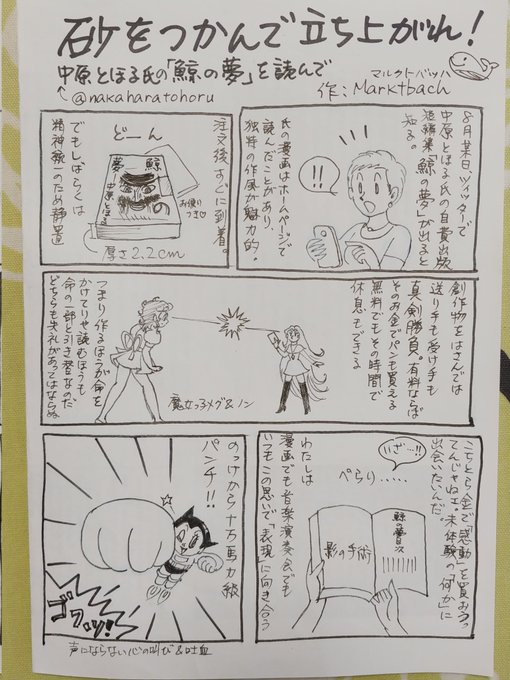 砂をつかんで立ち上がれ!
中原とほる氏の「鯨の夢」を読んで
↑@nakaharatohoru
マルクトバッハ
作:Marktbach
8月某日ツィッターで
中原とほる氏の自費出版
短編集「鯨の夢」が出ると
知る。
!!
氏の漫画はホームページで
読んだことがあり、
独特の作風が魅力的。
注文後すぐに到着。
どーん
鯨の
夢
中原とほる
お便り
つき♡
厚さ2.2cm
でもしばらくは
精神統一のため静置
創作物をはさんでは
送り手も受け手も
真剣勝負。有料ならば
そのお金でパンも買える
無料でもその時間で
休息もできる
魔女っ子メグ&ノン
つまり作るほうが命を
かけてりゃ読むほうも
命の一部と引き替なのだ
どちらも失礼があってはならぬ
こちとら金で「感動」を買おうっ
てんじゃねェ。未体験の「何か」に
出会いたいんだ。
いざ…!!
ぺらり.....
鯨の夢目次
影の手術
わたしは
漫画でも音楽演奏会でも
いつもこの思いで「表現」に向き合う
のっけから十万馬力級
パンチ!!
ゴワッ!
声にならない心の叫び&吐血